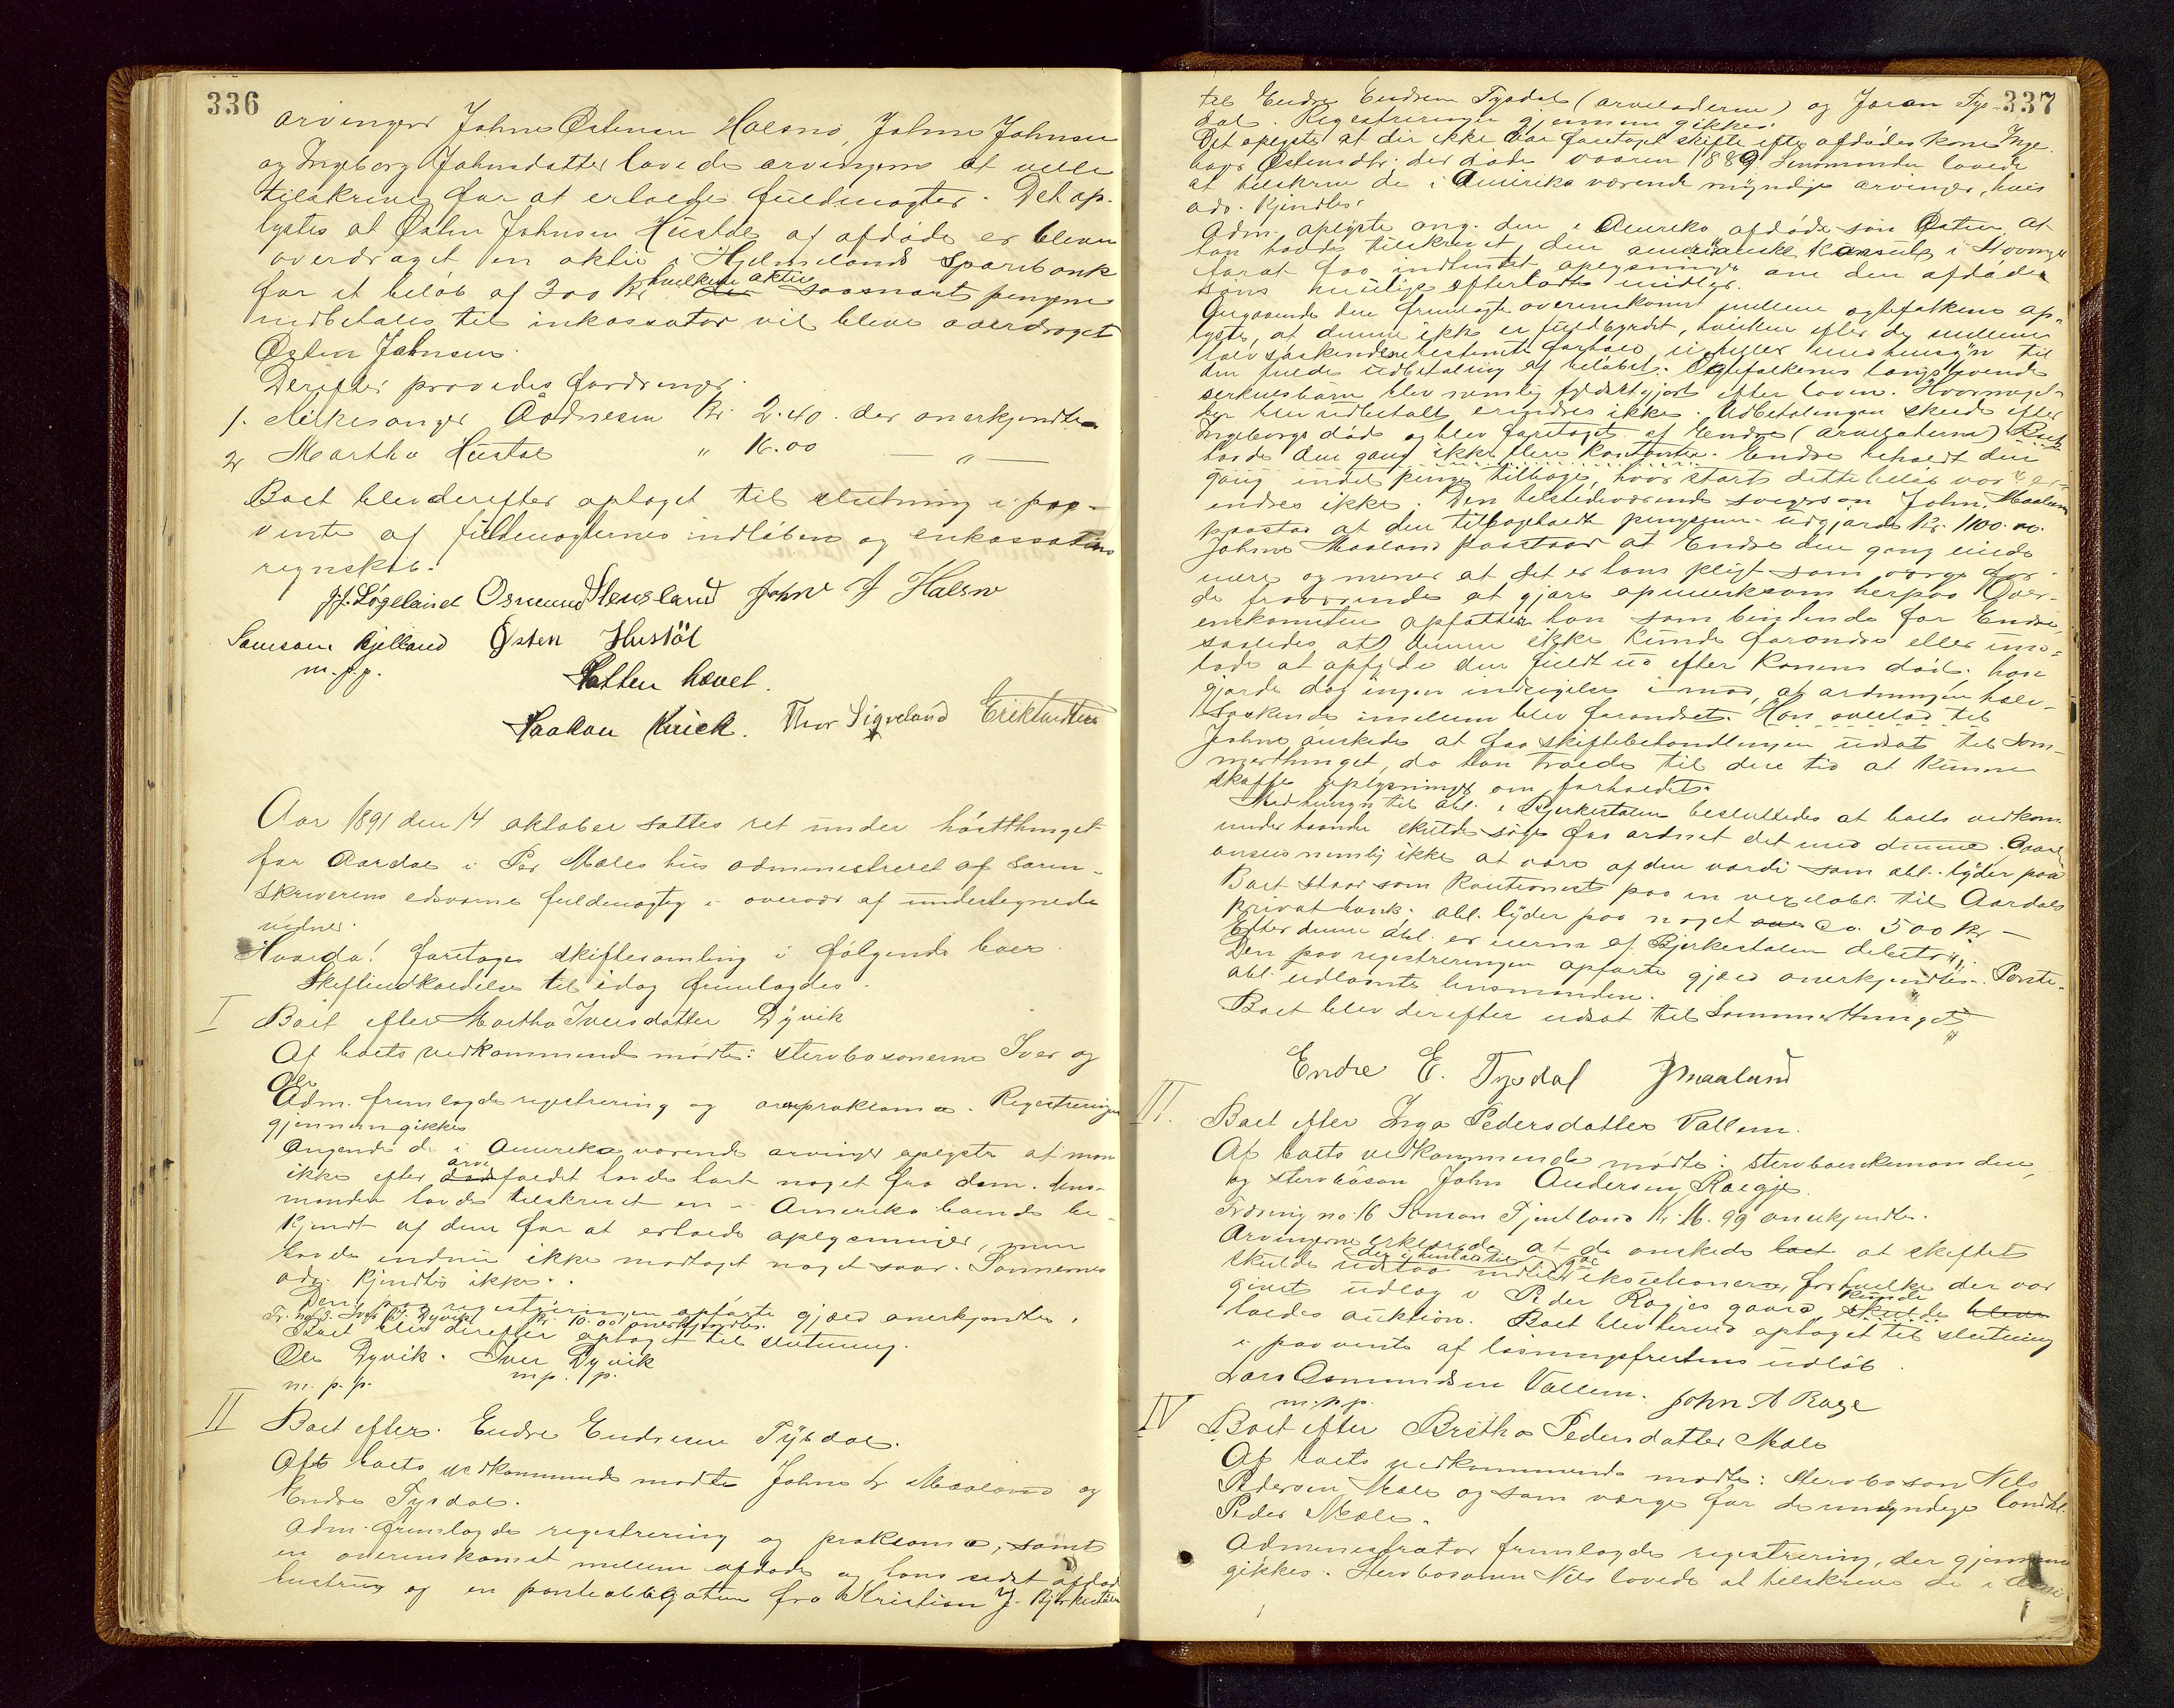 336
arvinger Johne Østensen Halsnø, Johne Johnsen
og Ingeborg Johnsdatter lovede arvingerne at ville
tilskrive for at erholde fuldmagter. Det op-
lystes at Østen Johnsen Hustøl af afdøde er bleven
overdraget en aktie i Hjelmelands Sparebank
for et beløb af 300 kr hvilken aktie saasnart pengene
indbetales til inkassator vil blive overdraget
Østen Johnsen.
Derefter prøvedes fordringer.
1. Kirkesanger Aadnesen Kr. 2.40. der anerkjendtes
2 Martha Hustøl " 16.00 — " —
Boet blev derefter optaget til slutning i paa-
vente af fuldmagternes indløben og inkassators
regnskab.
J. J. Løgeland Osmund Hensland John J Halsnø
Samson Kjelland Østen Hustøl
m. p. p.
Retten hævet.
Haakon Krick. Thor Sigveland Erik Knudsen
Aar 1891 den 14 oktober sattes ret under høstthinget
for Aardal i Per Mæles hus administreret af Soren-
skriverens edsvorne fuldmægtig i overvær af undertegnede
vidner.
Hvorda! foretoges skiftesamling i følgende boer.
Skifteindkaldelse til idag fremlagdes.
I Boet efter Martha Iversdatter Dyvik
Af boets vedkommende mødte: stervbosønnerne Iver og
Ole
Adm. fremlagde registrering og proklama. Registreringen
gjennemgikkes
Angaaende de i Amerika værende arvinger oplystes at man
ikke efter arvefaldet havde hørt noget fra dem. Enke-
manden havde tilskrevet en i Amerika boende be-
kjendt af dem for at erholde oplysninger, men
havde endnu ikke modtaget noget svar. Sønnernes
adr. kjendtes ikke.
Den paa registreringen opførte gjæld anerkjendtes.
Fr. no 3. Dyvik kr. 10.00 anerkjendtes.
Boet blev derefter optaget til slutning.
Ole Dyvik. Iver Dyvik
m. p. p. m. p. p.
II Boet efter. Endre Endresen Tysdal.
Af boets vedkommende mødte Johne L Maaland og
Endre Tysdal.
Adm. fremlagde registrering og proklama, samt
en overenskomst mellem afdøde og hans sidst afdøde
hustru og en panteobligation fra Kristian J. Bjerkestalen
337
til Endre Endresen Tysdal (arveladeren) og Joran Tys-
dal. Registreringen gjennemgikkes.
Det oplystes at der ikke var foretaget skifte efter afdødes kone Inge-
borg Østensdtr. der døde vaaren 1889 Svennunden lovede
at tilskrive de i Amerika værende myndige arvinger, hvis
adr. kjendtes.
Adm. oplyste ang. den i Amerika afdøde søn Østen, at
han havde tilskrevet den amerikanske Konsul i Stavanger
forat faa indhentet oplysninger om den afdøde
søns mulige efterladte midler.
Angaaende den fremlagte overenskomst mellem ægtefolkene op-
lystes, at denne ikke er fuldbyrdet, hverken efter de mellem
halvsøskendene bestemte forhold, ei heller med hensyn til
den fulde udbetaling af beløbet. Ægtefolkenes langtlevende
særkulsbarn blev nemlig fyldestgjort efter loven. Hvormeget
der blev udbetalt erindres ikke. Udbetalingen skede efter
Ingeborgs død og blev foretaget af Endre (arveladeren)
havde den gang ikke flere kontanter. Endre beholdt den
gang indel penge tilbage, hvor stort dette beløb var er-
indres ikke. Den tilstedeværende svigersøn John Maaland
paastod at den tilbageholdt pengesum udgjorde Kr. 1100.00.
Johne Maaland paastaar at Endre den gang eiede
mere og mener at det er hans pligt som værge for
de fraværende at gjøre opmærksom herpaa. Over-
enskomsten opfatter han som bindende for Endre,
saaledes at denne ikke kunde forandre eller und-
lade at opfylde den fuldt ud efter konens død. han
gjorde dog ingen indsigelse imod, at ordningen halv-
søskende imellem blev forandret. Han overlod til
Johne ønskede at faa skiftebehandlingen udsat til Som-
merthinget, da han troede til den tid at kunne
skaffe oplysninger om forholdet.
Med hensyn til obl. i Bjerkestalen besluttedes at boets vedkom-
mende skulde søge faa ordnet det med denne. Gaard
ansees nemlig ikke at være af den værdi som obl. lyder paa
Boet staar som kautionist paa en vexelobl. til Aardals
Privatbank, obl. lyder paa noget ca. 500 Kr —
Efter denne obl. er eieren af Bjerkestalen debitor.
Den paa registreringen opførte gjæld anerkjendtes. Pante-
obl. udlaantes lensmanden.
Boet blev derefter udsat til Sommerthinget
Endre E. Tysdal J Maaland
III. Boet efter Inga Pedersdatter Vallem.
Af boets vedkommende mødte: stervboenkemanden,
og stervbosøn John Andersen Raegje.
Fordring no. 16 Samson Tjentland kr. 16. 99 anerkjendtes.
Arvingerne erklærede at de ønskede at skiftet
skulde udstaa indtil exekutionerne, for hvilke der var
givet udlæg i Peder Ragjes gaard, kunde
holdes auktion. Boet blev herved optaget til slutning
i paavente af løsningsfristens udløb.
Lars Osmundsen Vallem. John A Rage
m. p. p.
IV Boet efter Britha Pedersdatter Mæle
Af boets vedkommende mødte: Stervbosøn Nils
Pedersen Mæle og som værge for de umyndige landhl.
Peder Mæle.
Administrator fremlagde registrering, der gjennem-
gikkes. Stervbosønnen Nils lovede at tilskrive de i Ame-